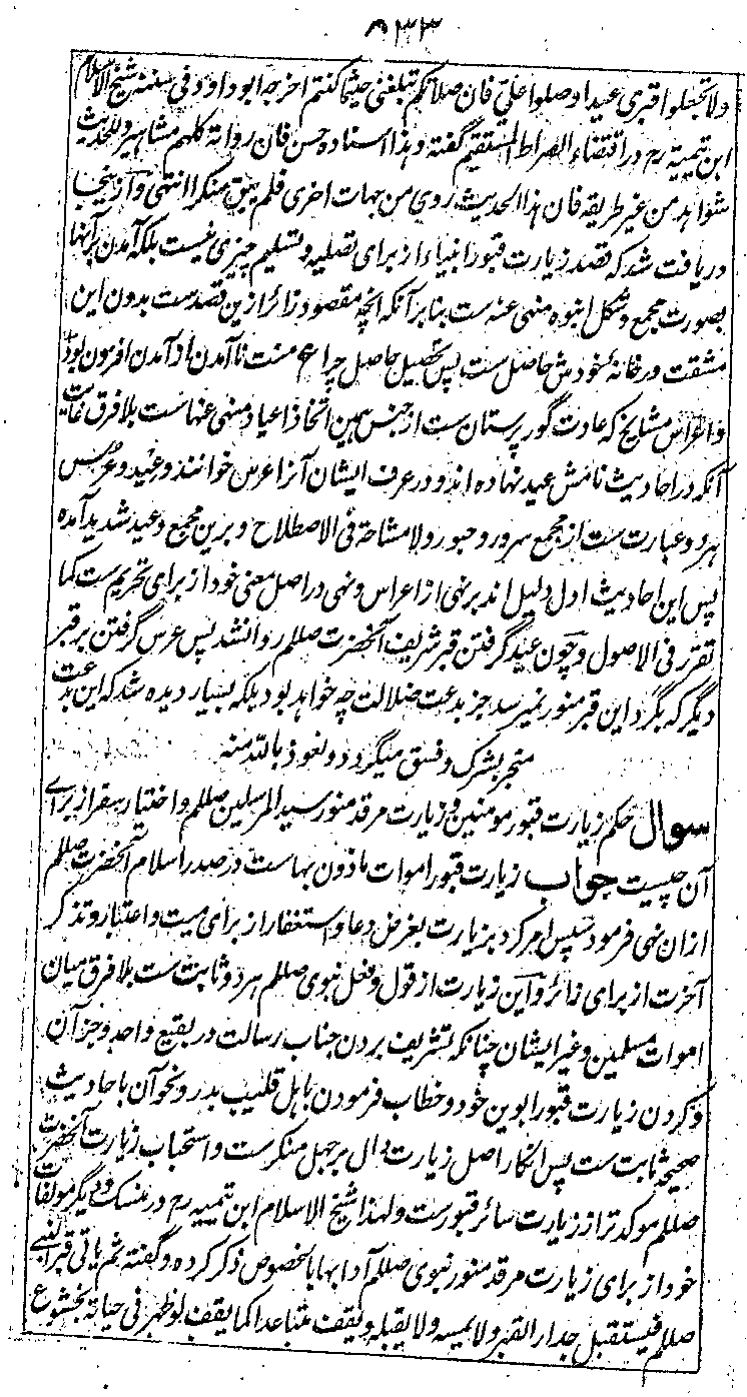 ۵۳۳
ولا تجعلوا قبری عیدا وصلوا علیّ فان صلاتکم تبلغنی حیثما کنتم اخرجه ابو داود فی سننه شیخ الاسلام
ابن تیمیه رح در اقتضاء الصراط المستقیم گفته وهذا اسناده حسن فان رواته کلهم مشاهیر وللحدیث
شواهد من غیر طریقه فان هذا الحدیث روی من جهات اخری فلم یبق منکرا انتهی و از ینجا
دریافت شد که قصد زیارت قبور انبیاء از برای تصلیه و تسلیم چیزی نیست بلکه آمدن بر آنها
بصورت مجمع و شکل انبوه منهی عنه ست بنابر آنکه آنچه مقصود زائر ازین قصدست بدون این
مشقت در خانۀ خودش حاصل ست پس تحصیل حاصل چرا ع منت ناآمدن از آمدن افزون بود
و اعراس مشایخ که عادت گور پرستان ست از جنس همین اتخاذ اعیاد منهی عنهاست بلا فرق غایت
آنکه در احادیث نامش عید نهاده اند و در عرف ایشان آنرا عرس خوانند و عید و عرس
هر دو عبارت ست از مجمع سرور و حبور ولا مشاحة فی الاصطلاح و برین مجمع وعید شدید آمده
پس این احادیث اول دلیل اند بر نهی از اعراس و نهی در اصل معنی خود از برای تحریم ست کما
تقرر فی الاصول و چون عید گرفتن قبر شریف آنحضرت صللم روا نشد پس عرس گرفتن بر قبر
دیگر که بگرد این قبر منور نمیرسد جز بدعت ضلالت چه خواهد بود بلکه بسیار دیده شد که این بدعت
منجر بشرک و فسق میگردد و نعوذ بالله منه
سوال حکم زیارت قبور مومنین و زیارت مرقد منور سید المرسلین صللم و اختیار سفر از برای
آن چیست جواب زیارت قبور اموات ماذون بهاست در صدر اسلام آنحضرت صللم
ازان نهی فرمود سپس امر کرد بزیارت بغرض دعا و استغفار از برای میت و اعتبار و تذکر
آخرت از برای زائر و این زیارت از قول و فعل نبوی صللم هر دو ثابت ست بلا فرق میان
اموات مسلمین و غیر ایشان چنانکه تشریف بردن جناب رسالت در بقیع واحد و جز آن
و کردن زیارت قبور ابوین خود و خطاب فرمودن باهل قلیب بدر و نحو آن باحادیث
صحیحه ثابت ست پس انکار اصل زیارت دال بر جهل منکرست و استحباب زیارت آنحضرت
صللم موکد تر از زیارت سائر قبورست ولهذا شیخ الاسلام ابن تیمیه رح در منسک و دیگر مولفات
خود از برای زیارت مرقد منور نبوی صللم آدابها بالخصوص ذکر کرده و گفته ثم یاتی قبر النبی
صللم فیستقبل جدار القبر ولا یمسه ولا یقبله ویقف متباعدا کما یقف لو ظهر فی حیاته بخشوع